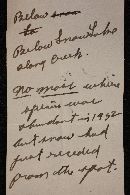 Below
to
Below Snow Lake
along Creek.
No moss where
species was
abundant in 1932
but snow had
just receded
from the spot.